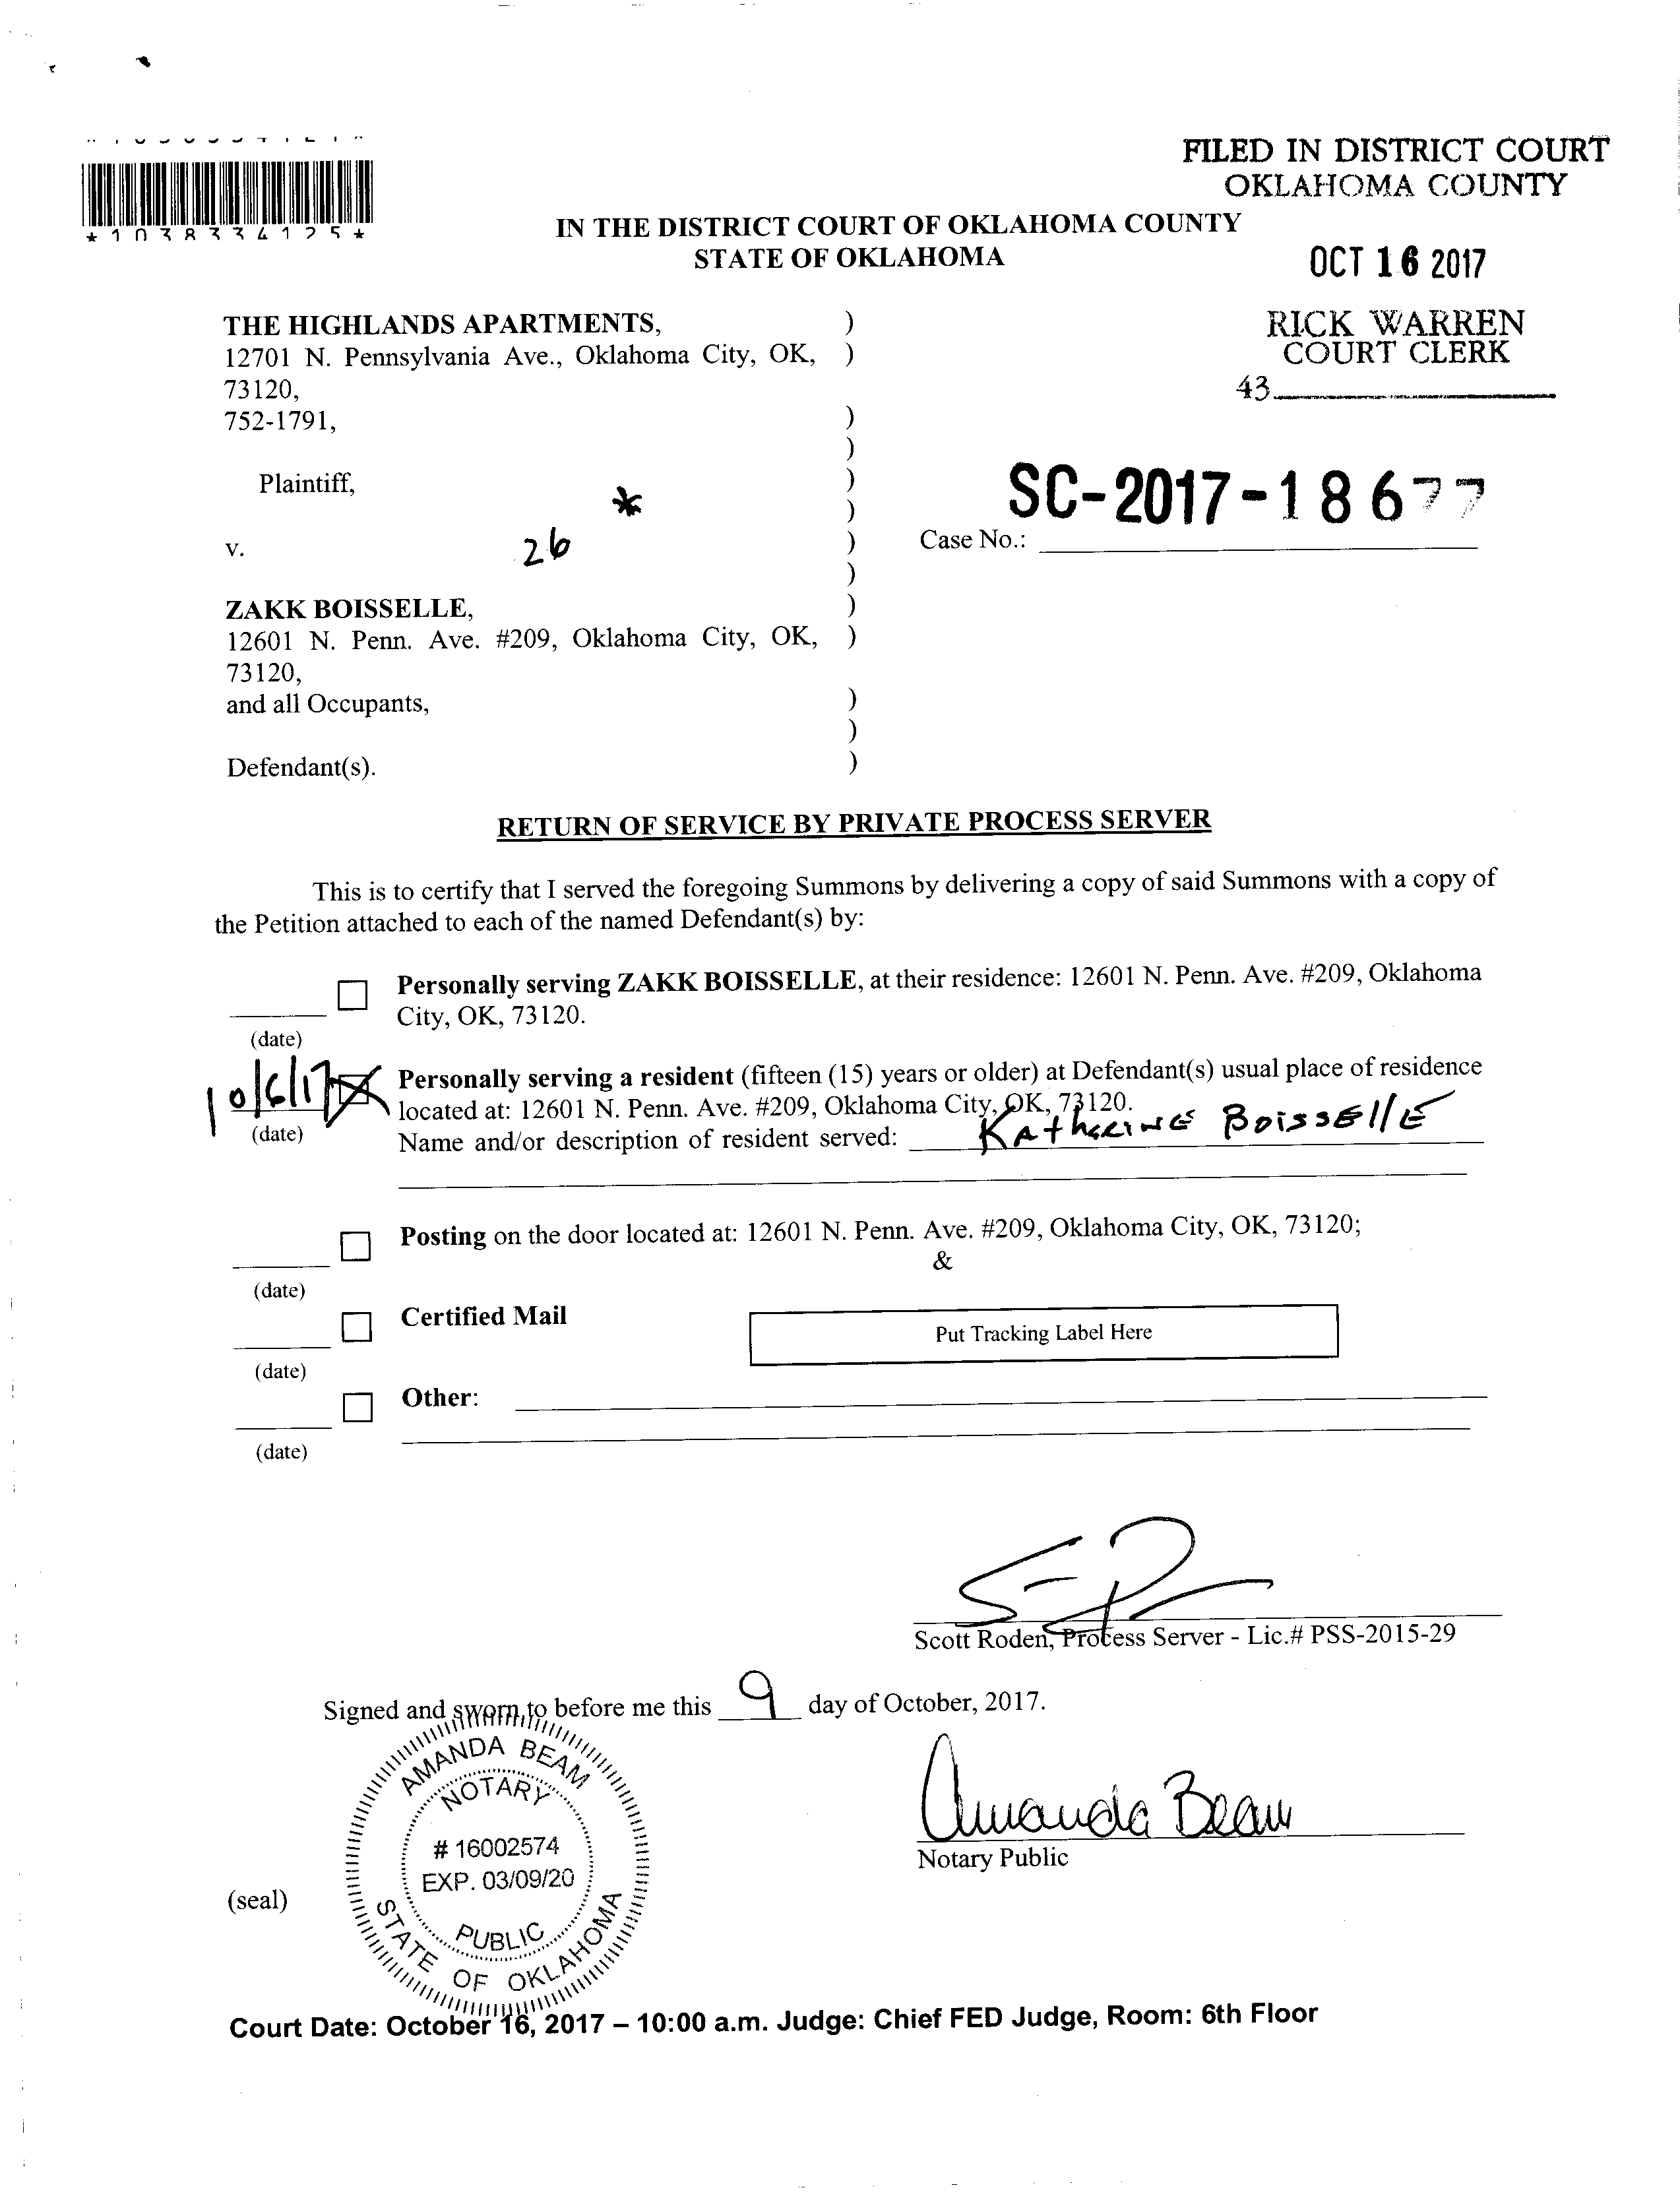 FILED IN DISTRICT COURT
OKLAHOMA COUNTY
*1038334125*
IN THE DISTRICT COURT OF OKLAHOMA COUNTY
STATE OF OKLAHOMA
OCT 16 2017
RICK WARREN
COURT CLERK
43
THE HIGHLANDS APARTMENTS, )
12701 N. Pennsylvania Ave., Oklahoma City, OK, )
73120,
752-1791, )
)
Plaintiff, )
* )
v. 26 )
)
SC-2017-18677
Case No.:
ZAKK BOISSELLE, )
12601 N. Penn. Ave. #209, Oklahoma City, OK, )
73120,
and all Occupants, )
)
Defendant(s). )
RETURN OF SERVICE BY PRIVATE PROCESS SERVER
This is to certify that I served the foregoing Summons by delivering a copy of said Summons with a copy of
the Petition attached to each of the named Defendant(s) by:
Personally serving ZAKK BOISSELLE, at their residence: 12601 N. Penn. Ave. #209, Oklahoma
City, OK, 73120.
(date)
10/6/17 Personally serving a resident (fifteen (15) years or older) at Defendant(s) usual place of residence
located at: 12601 N. Penn. Ave. #209, Oklahoma City, OK, 73120.
(date) Name and/or description of resident served: Katherine Boisselle
Posting on the door located at: 12601 N. Penn. Ave. #209, Oklahoma City, OK, 73120;
&
(date)
Certified Mail Put Tracking Label Here
(date)
Other:
(date)
Scott Roden, Process Server - Lic.# PSS-2015-29
Signed and sworn to before me this 9 day of October, 2017.
AMANDA BEAM
NOTARY
# 16002574
EXP. 03/09/20
PUBLIC
STATE OF OKLAHOMA
Amanda Beam
Notary Public
(seal)
Court Date: October 16, 2017 – 10:00 a.m. Judge: Chief FED Judge, Room: 6th Floor